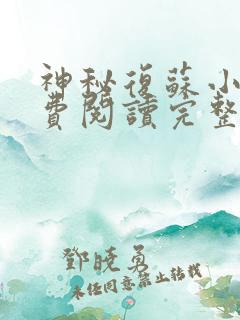 神秘復蘇小
費閱讀完整
鄧曉勇
未經同意禁止轉載